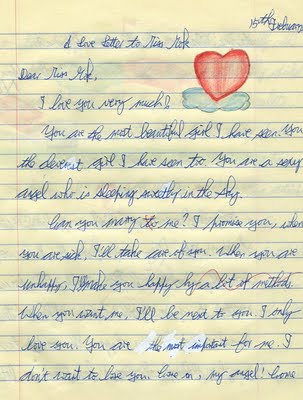 15th February
A love letter to Miss Mok
Dear Miss Mok,
I love you very much!
You are the most beautiful girl I have seen. You
the cleverest girl I have seen too. You are a sexy
angel who is sleeping sweetly in the sky.
Can you marry to me? I promise you, when
you are sick, I'll take care of you. When you are
unhappy, I'll make you happy by a lot of method,
When you want me, I'll be next to you. I only
love you. You are the most important for me. I
don't want to lose you. Come on, my angel!